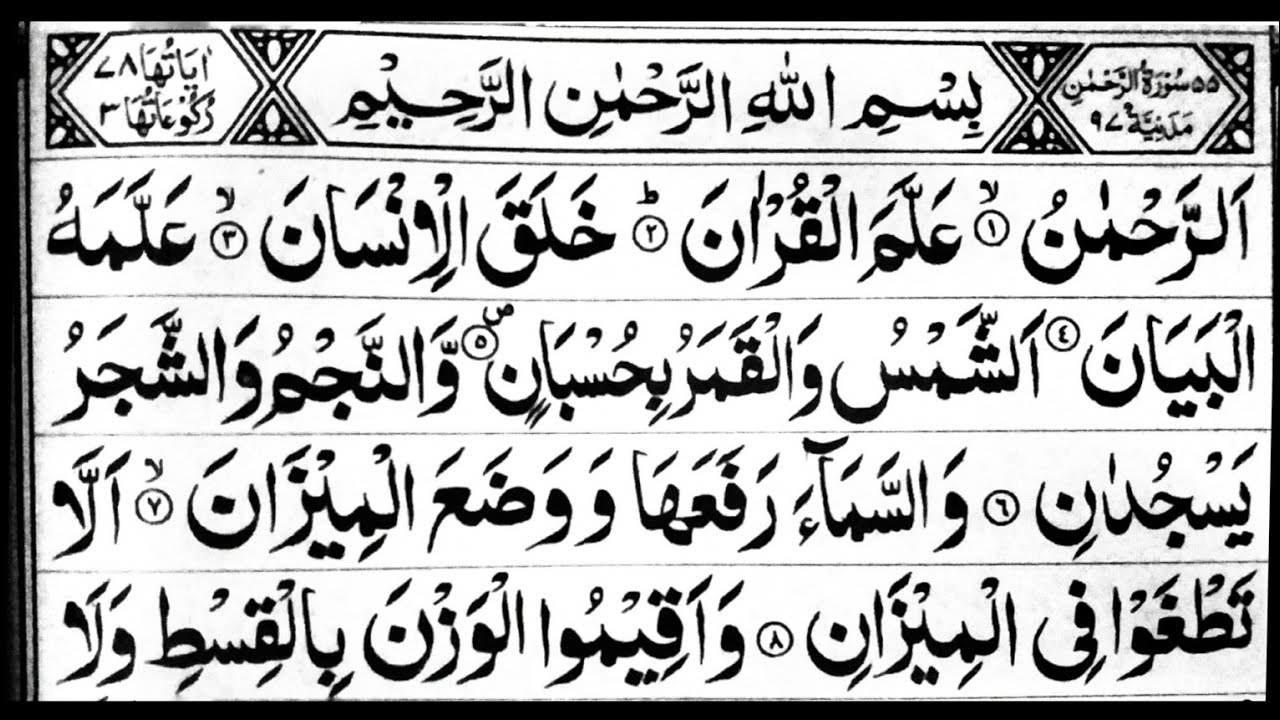 ۵۵ سُوْرَةُ الرَّحْمٰنِ
مَدَنِيَّةٌ ۹۷
بِسْمِ اللّٰهِ الرَّحْمٰنِ الرَّحِيْمِ
اٰيَاتُهَا ۷۸
رُكُوْعَاتُهَا ۳
اَلرَّحْمٰنُ ۙ﴿۱﴾ عَلَّمَ الْقُرْاٰنَ ؕ﴿۲﴾ خَلَقَ الْاِنْسَانَ ۙ﴿۳﴾ عَلَّمَهُ
الْبَيَانَ ﴿۴﴾ اَلشَّمْسُ وَالْقَمَرُ بِحُسْبَانٍ ۪﴿۵﴾ وَّالنَّجْمُ وَالشَّجَرُ
يَسْجُدٰنِ ﴿۶﴾ وَالسَّمَآءَ رَفَعَهَا وَوَضَعَ الْمِيْزَانَ ۙ﴿۷﴾ اَلَّا
تَطْغَوْا فِى الْمِيْزَانِ ﴿۸﴾ وَاَقِيْمُوا الْوَزْنَ بِالْقِسْطِ وَلَا